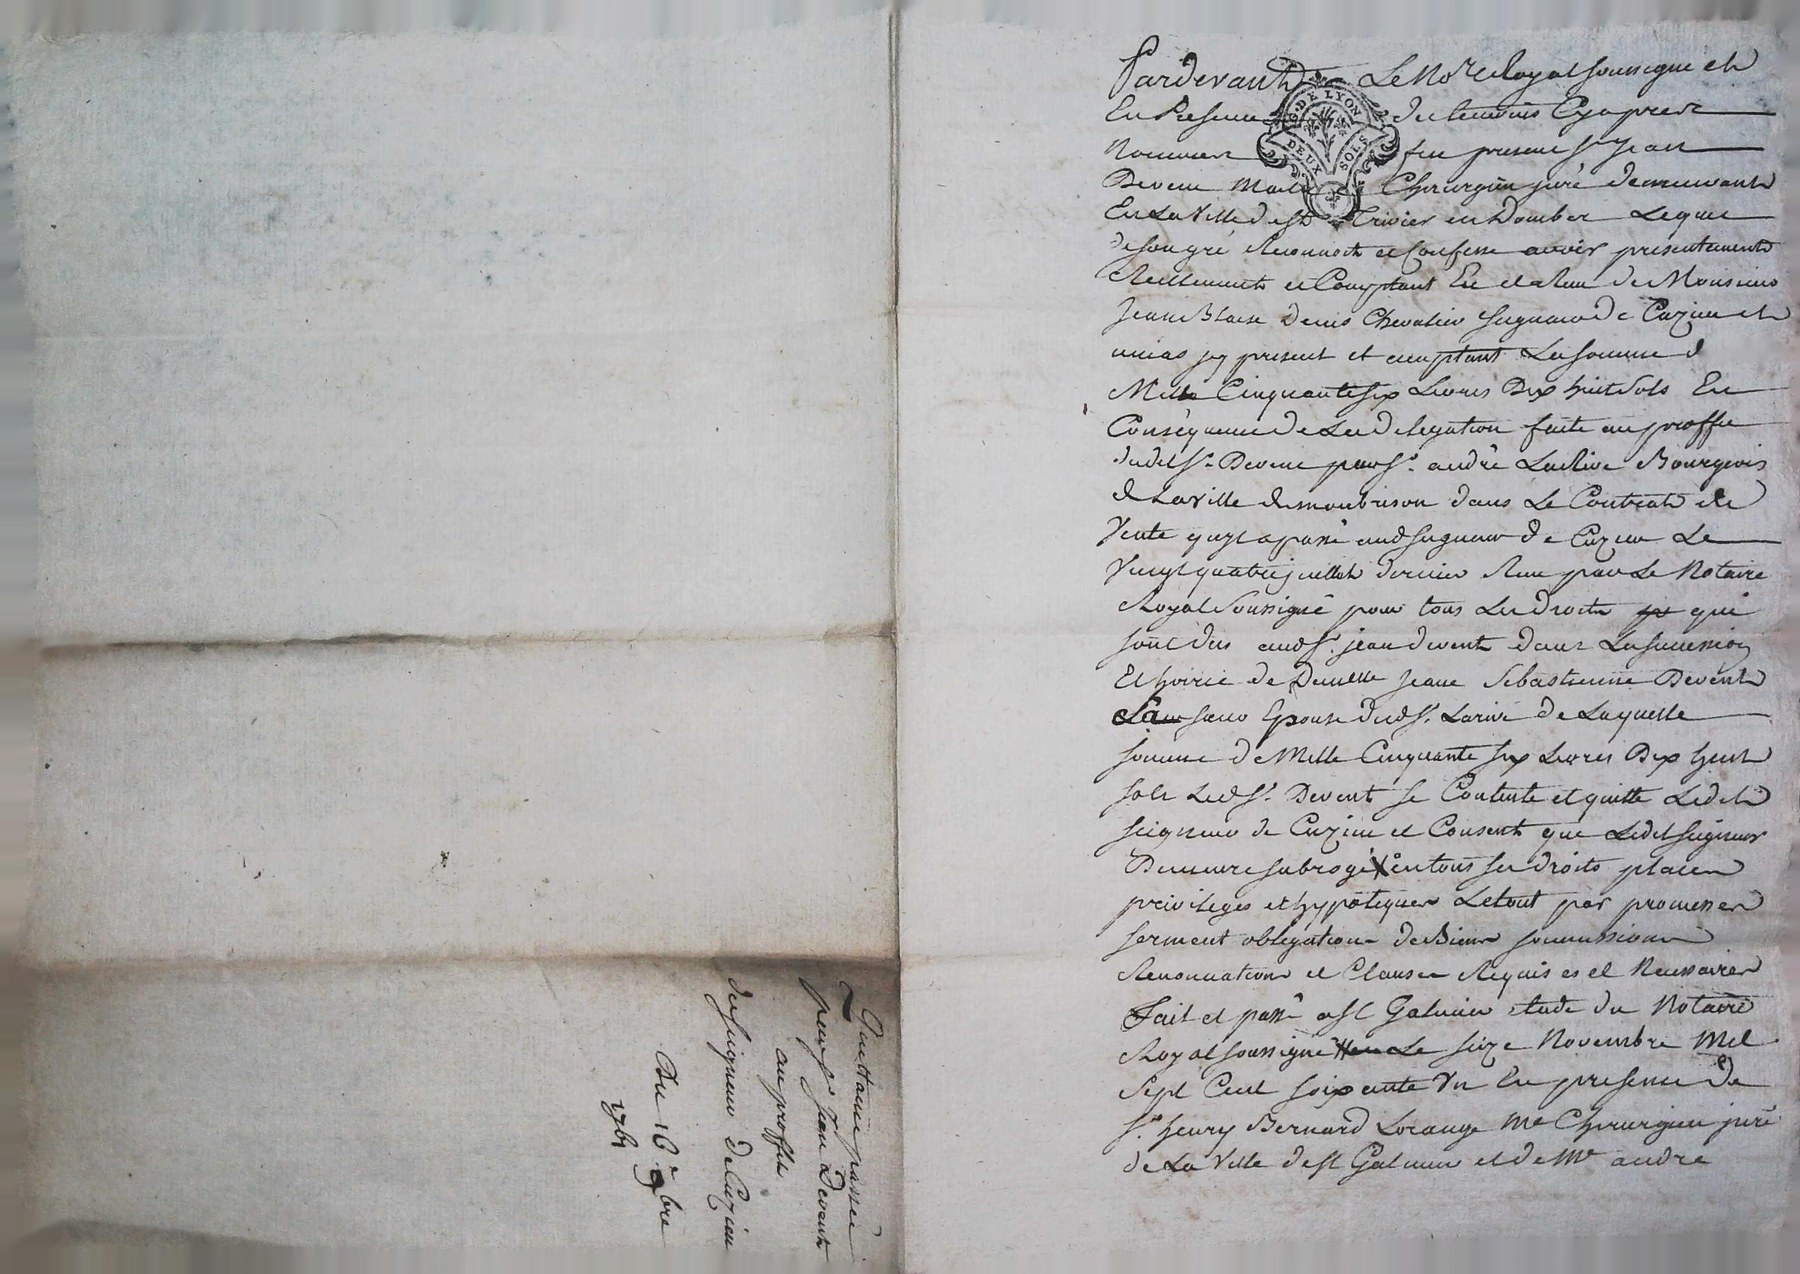 Pardevant Le No.re Royal soussigné et
En Presence des temoins Cy apres
Nommes fut present Sr Jean
Devent Maitre Chirurgien juré demeurant
En La Ville de St Trivier en Dombes Lequel
de son gré Reconnoit et Confesse avoir presentement
Reellement et Comptant Eu et Receu de Monsieur
Jean Blaise Denis Chevalier Seigneur De Cuzieu et
unias jcy present et acceptant La somme de
Mille Cinquante six Livres Dix huit sols En
Conséquence De La delegation faite au proffit
dudit Sr. Devent par Sr. andré Larive Bourgeois
de La Ville de montbrison dans Le Contrat de
Vente quil a passé aud seigneur de Cuzieu Le
Vingt quatre juillet dernier Receu par Le Notaire
Royal soussigné pour tous Les droits qui
sont dus aud Sr. jean devent dans La succession
Et hoirie de Demlle Jeane Sebastienne Devent
Sa soeur Epouse dud Sr. Larive de Laquelle
somme de Mille Cinquante six Livres Dix huit
sols Led Sr. Devent se Contente et quitte Ledit
seigneur de Cuzieu et Consent que Ledit seigneur
Demeure subrogé en tous ses droits places
privileges et hypoteques Le tout par promesses
serment obligation de Biens soumissions
Renonciations et Clauses Requises et Necessaires
Fait et passé a St Galmier etude du Notaire
Royal soussigné Le seize Novembre Mil
Sept Cent soixante Un En presence De
Sr. henry Bernard Lorange Me Chirurgien juré
de La Ville de St Galmier et de Me andré
Quittance passée
par Sr Jean Devent
au proffit
du seigneur De Cuzieu
Du 16 9bre
1761